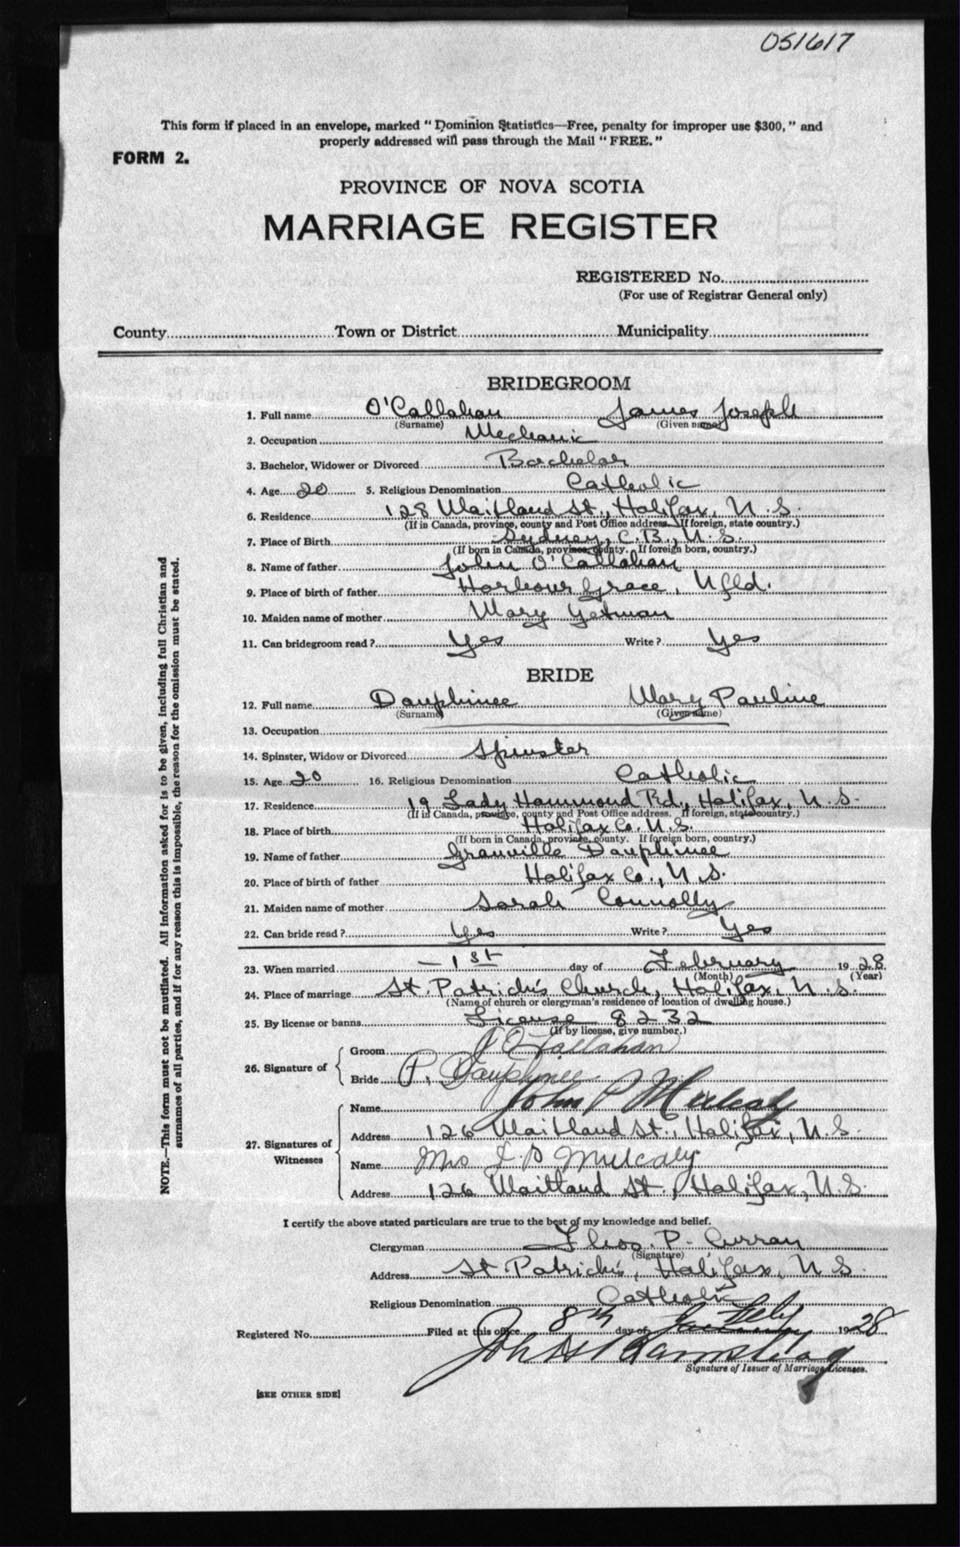 051617
This form if placed in an envelope, marked "Dominion Statistics—Free, penalty for improper use $300," and
properly addressed will pass through the Mail "FREE."
FORM 2.
PROVINCE OF NOVA SCOTIA
MARRIAGE REGISTER
REGISTERED No.
(For use of Registrar General only)
County Town or District Municipality
BRIDEGROOM
1. Full name O'Callahan James Joseph
(Surname) (Given name)
2. Occupation Mechanic
3. Bachelor, Widower or Divorced Bachelor
4. Age 20 5. Religious Denomination Catholic
6. Residence 128 Maitland St., Halifax, N.S.
(If in Canada, province, county and Post Office address. If foreign, state country.)
7. Place of Birth Sydney, C.B., N.S.
(If born in Canada, province, county. If foreign born, country.)
8. Name of father John O'Callahan
9. Place of birth of father Harbour Grace, Nfld.
10. Maiden name of mother Mary Yetman
11. Can bridegroom read? Yes Write? Yes
BRIDE
12. Full name Dauphinee Mary Pauline
(Surname) (Given name)
13. Occupation
14. Spinster, Widow or Divorced Spinster
15. Age 20 16. Religious Denomination Catholic
17. Residence 19 Lady Hammond Rd., Halifax, N.S.
(If in Canada, province, county and Post Office address. If foreign, state country.)
18. Place of birth Halifax Co. N.S.
(If born in Canada, province, county. If foreign born, country.)
19. Name of father Granville Dauphinee
20. Place of birth of father Halifax Co., N.S.
21. Maiden name of mother Sarah Connolly
22. Can bride read? Yes Write? Yes
23. When married — 1st day of February 1928
(Month) (Year)
24. Place of marriage St. Patrick's Church, Halifax, N.S.
(Name of church or clergyman's residence or location of dwelling house.)
25. By license or banns License 8232
(If by license, give number.)
26. Signature of
Groom J O'Callahan
Bride P. Dauphinee
27. Signatures of Witnesses
Name John P Mulcahy
Address 126 Maitland St., Halifax, N.S.
Name Mrs J. P Mulcahy
Address 126 Maitland St., Halifax, N.S.
I certify the above stated particulars are true to the best of my knowledge and belief.
Clergyman Theo. P. Curran
(Signature)
Address St Patrick's, Halifax, N.S.
Religious Denomination Catholic
Registered No. Filed at this office 8th day of Feby 1928
John
Signature of Issuer of Marriage Licenses.
[SEE OTHER SIDE]
NOTE.—This form must not be mutilated. All information asked for is to be given, including full Christian and
surnames of all parties, and if for any reason this is impossible, the reason for the omission must be stated.